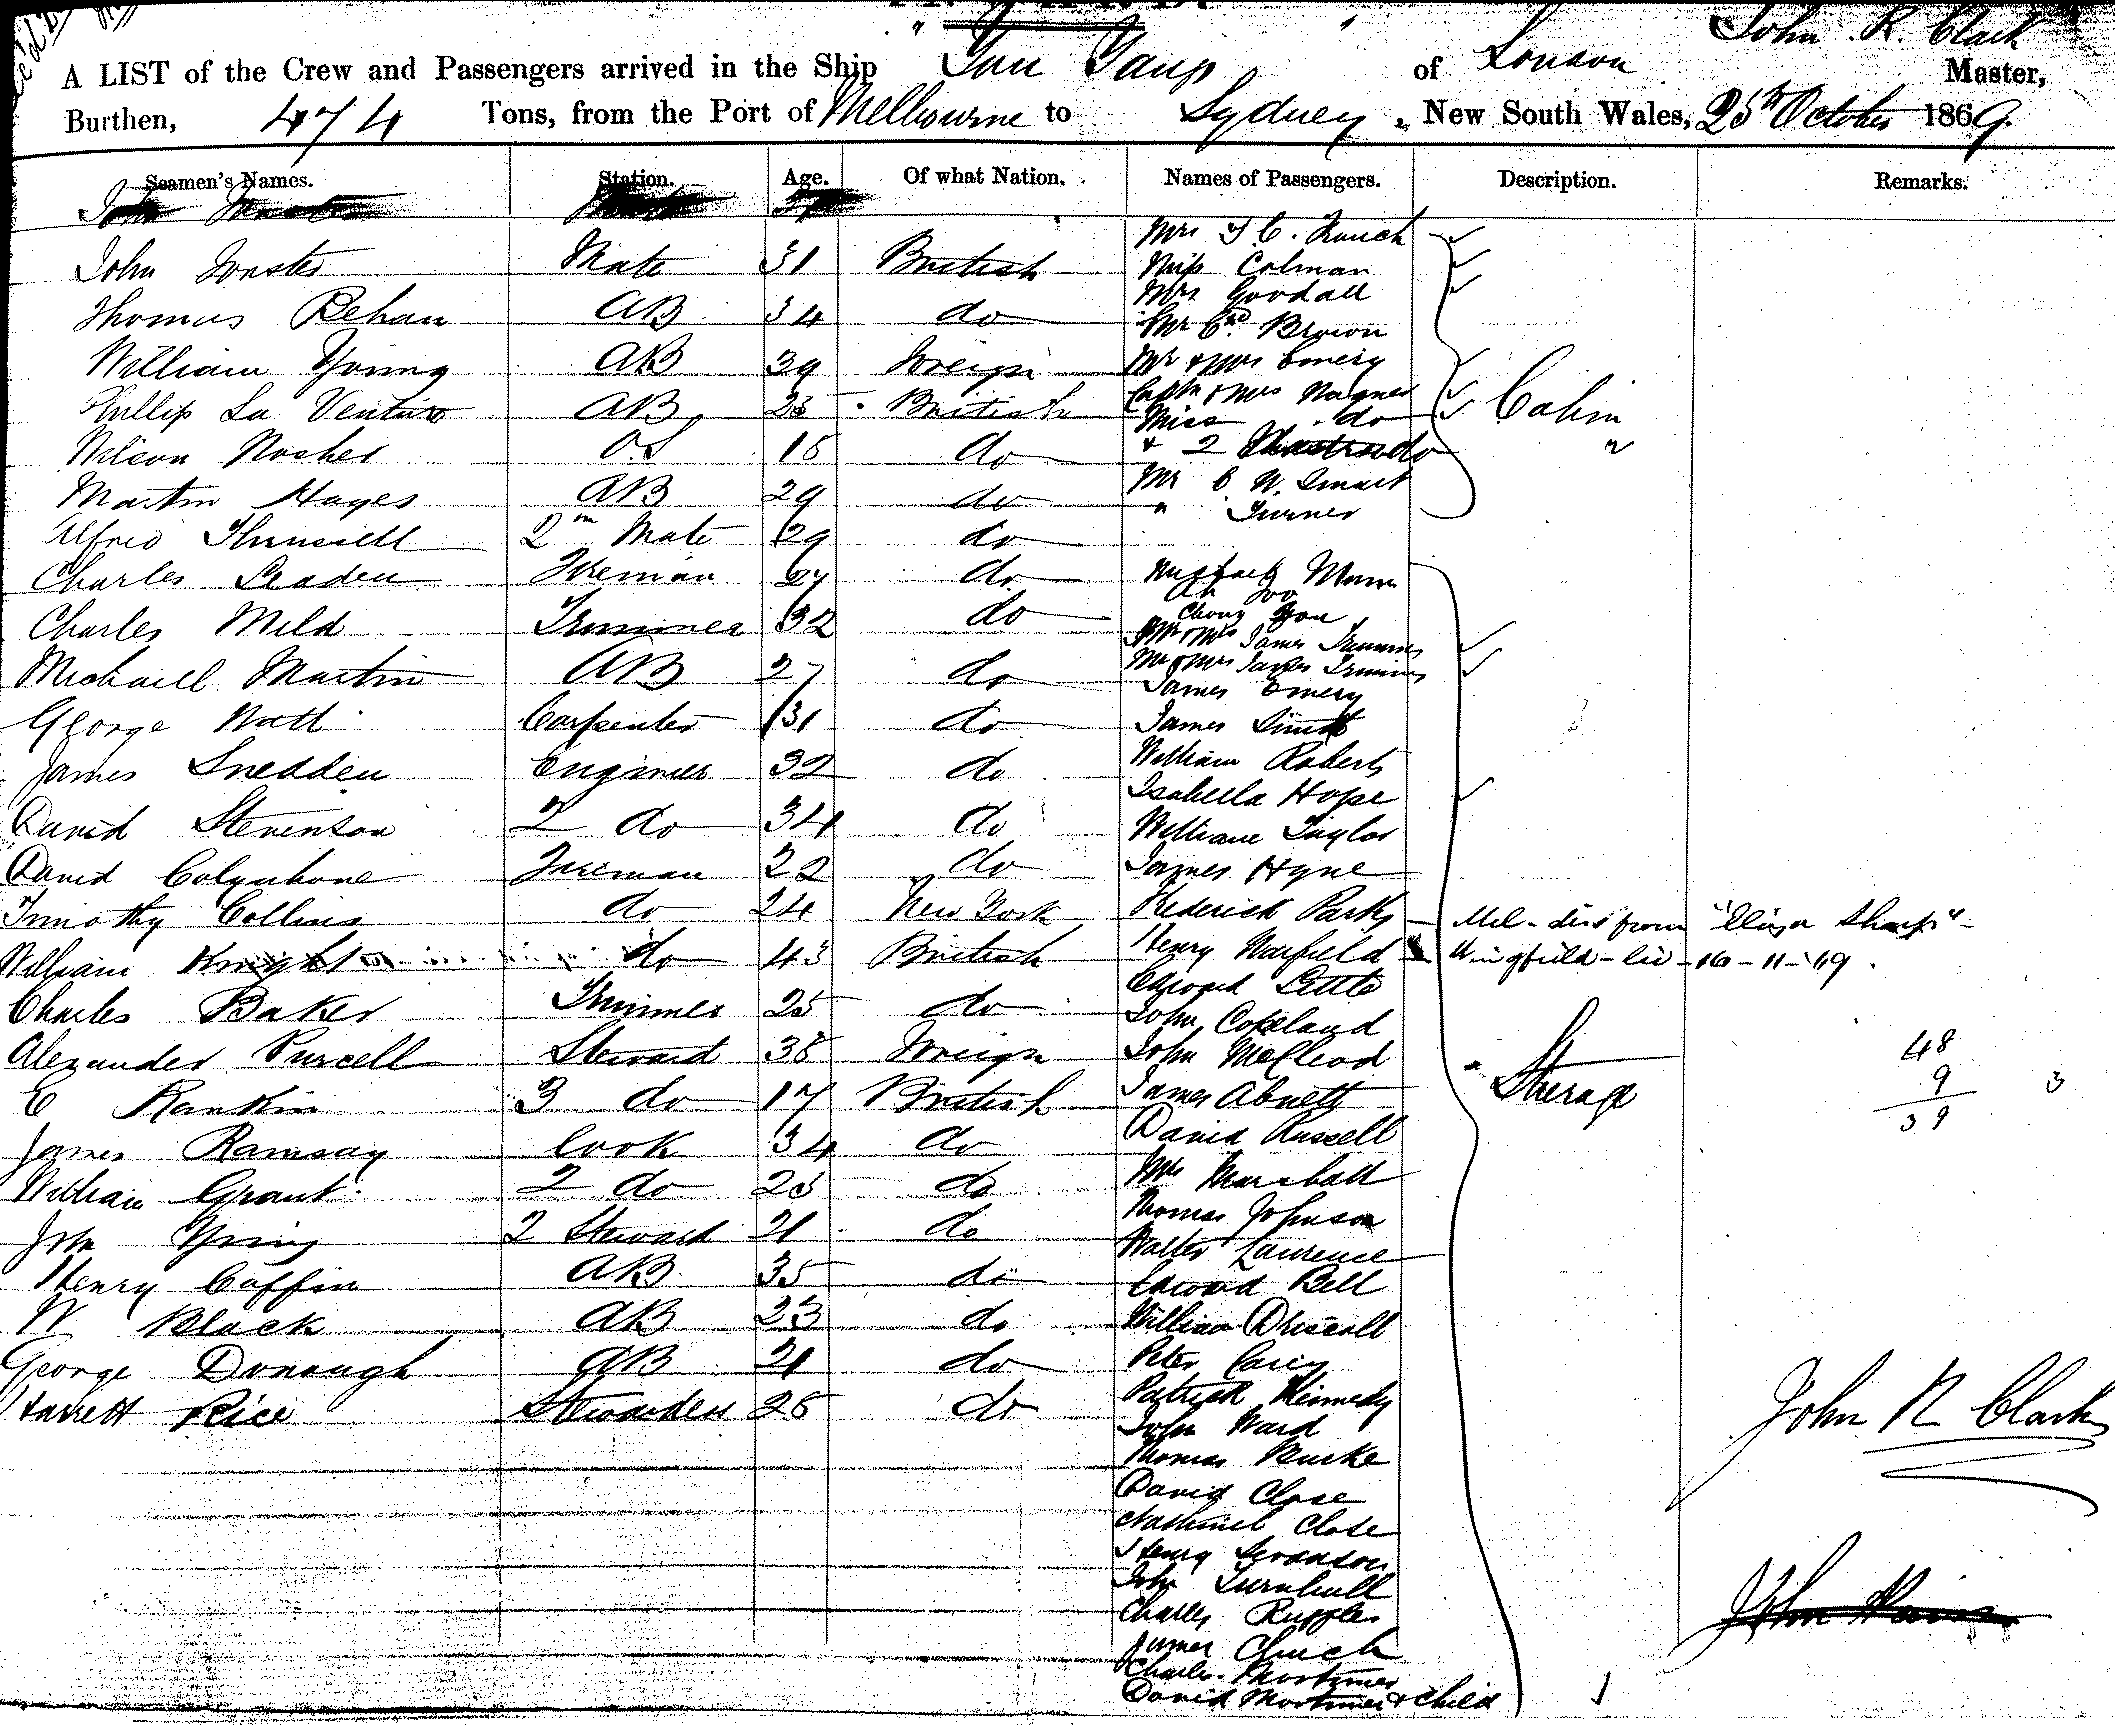 John R. Clark
A LIST of the Crew and Passengers arrived in the Ship " You Yangs " of London Master,
Burthen, 474 Tons, from the Port of Melbourne to Sydney, New South Wales, 25th October 1869.
Seamen's Names. Station. Age. Of what Nation. Names of Passengers. Description. Remarks.
John
Mrs J C.
John Mate 31 British Miss Colman
Mrs Goodall
Thomas Behan AB 34 do Mr Brown
William Young AB 39 Foreign Mr & Mrs Emery
Phillip La AB British Captn & Mrs Cabin
Miss do
Mosher OS do & 2 do "
Martin Hayes AB 29 do Mr C W. Smart
" Turner
Alfred 2nd Mate 29 do
Charles Fireman 27 do
Ah
Charles Mild Trimmer 32 do Chong
Mr & Mrs James
Michaell Martin AB 27 do Mr & Mrs James
James Emery
George Carpenter 31 do James
James Snedden Engineer 32 do William Roberts
Isabella Hope
David Stevenson 2 do 34 do William Taylor
David Fireman 22 do James Hyne
Timothy Collins do 24 New York Frederick Parks Mel - from "Eliza Sharp"
William Knight do 43 British Henry Warfield Wingfield - 16-11-
Edward Little
Charles Baker Trimmer 25 do John Copeland
Alexander Purcell Steward 38 Foreign John McCleod 48
E Rankin 3 do 17 British James Abnett Sterage 9 3
39
James Ramsay Cook 34 do David Russell
William Grant 2 do do Mr Marshall
Thomas Johnson
John Young 2 Steward 21 do Walter Lawrence
Henry Coffin AB 35 do Edward Bell
W Black AB 23 do William Driscoll
George Donough AB 21 do Peter Carey
Patrick Kennedy
Rice Stewardess do John R Clark
John Ward
Thomas Burke
David Close
Nathaniel Close
Henry Swanson
John Turnbull
Charles Ruggles
John
James Church
Charles Mortimer
David Mortimer & child